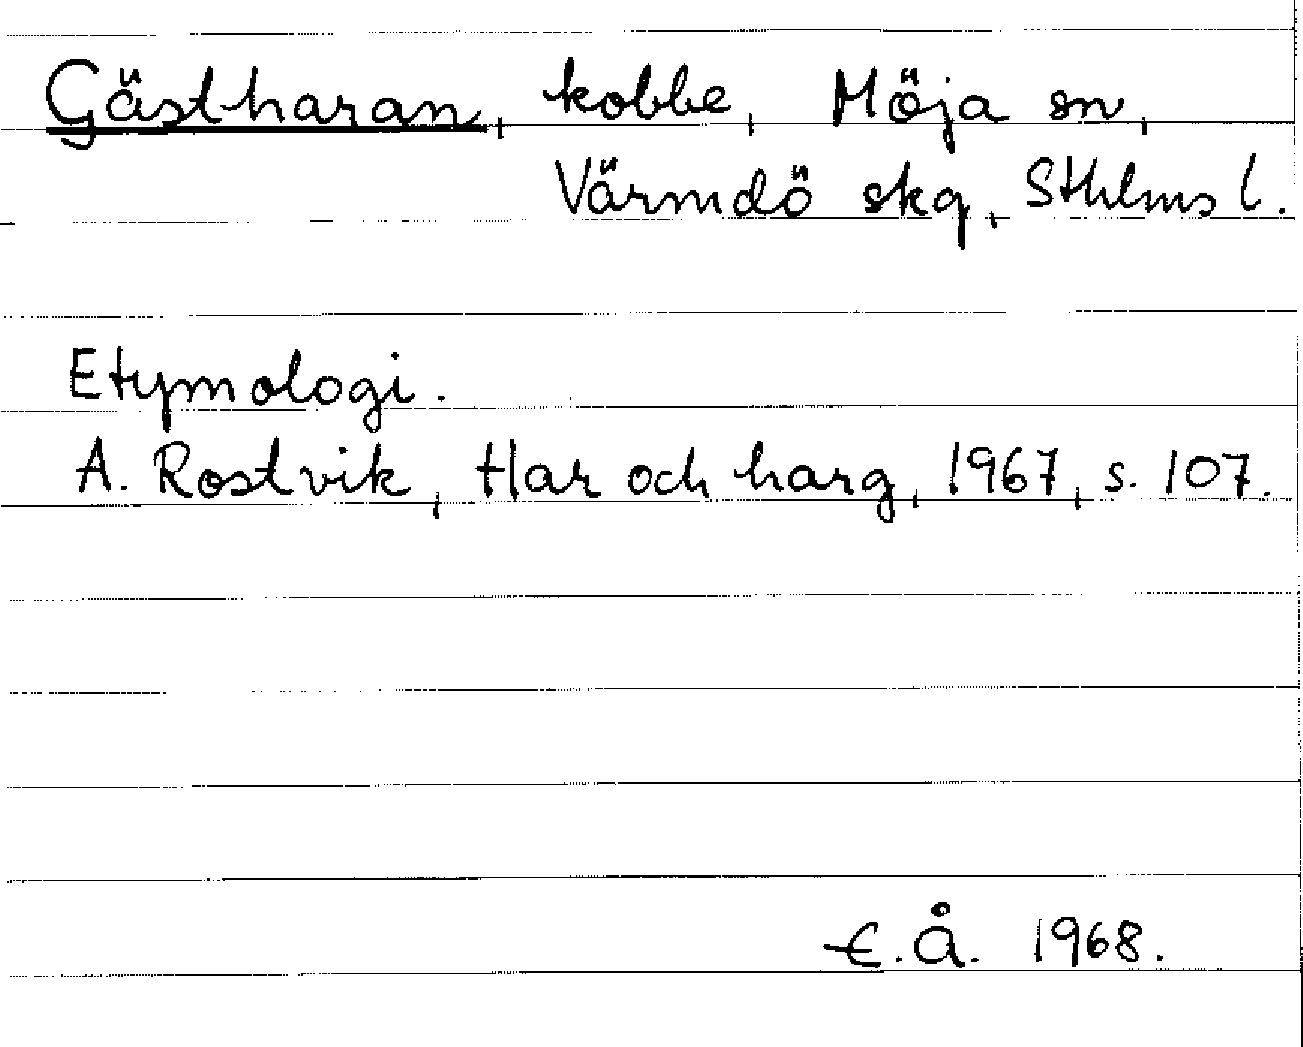 Gästharan, kobbe, Möja sn,
Värmdö skg, Sthlms l.
Etymologi.
A. Rostvik, Har och harg, 1967, s. 107.
E.Å. 1968.